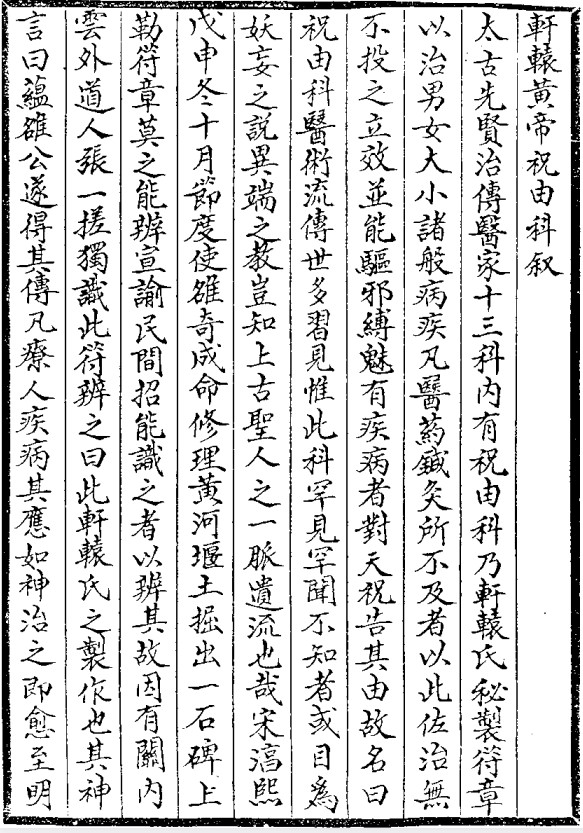 軒轅黃帝祝由科叙
太古先賢治傳醫家十三科内有祝由科乃軒轅氏秘製符章
以治男女大小諸般病疾凡醫药鍼灸所不及者以此佐治無
不投之立效並能驅邪縛魅有疾病者對天祝告其由故名曰
祝由科醫術流傳世多習見惟此科罕見罕聞不知者或目為
妖妄之説異端之教豈知上古聖人之一脈遺流也哉宋淳熙
戊申冬十月節度使雒奇成命修理黃河堰土掘出一石碑上
勒符章莫之能辨宣諭民間招能識之者以辨其故因有關内
雲外道人張一槎獨識此符辨之曰此軒轅氏之製作也其神
言曰蘊雒公遂得其傳凡療人疾病其應如神治之即愈至明